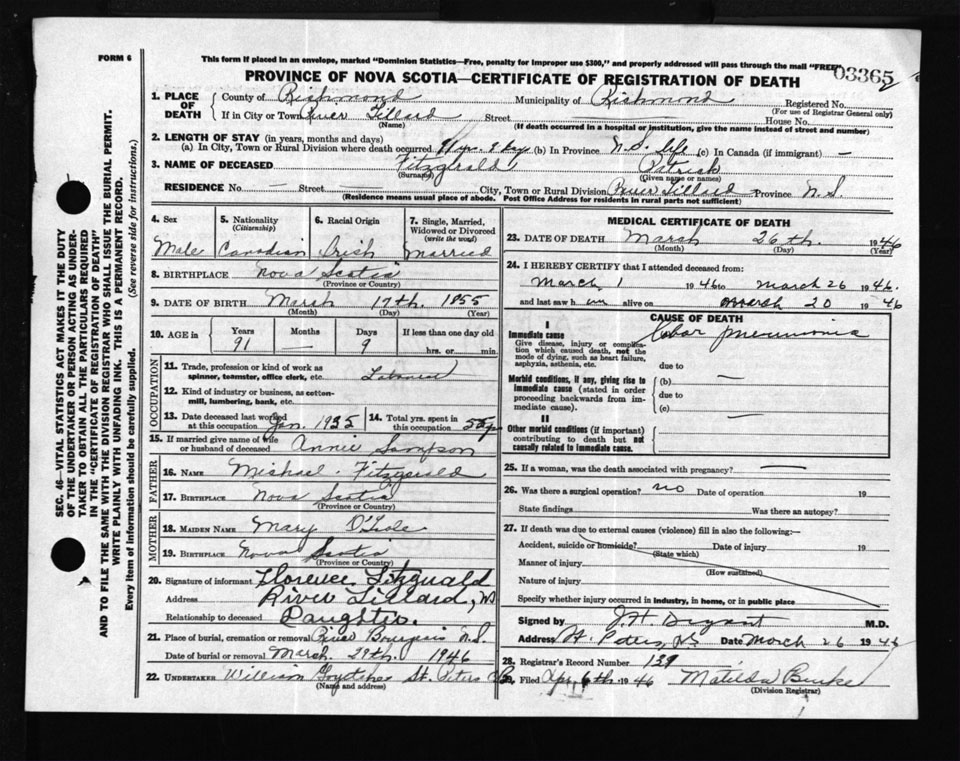 FORM 6
This form if placed in an envelope, marked "Dominion Statistics—Free, penalty for improper use $300," and properly addressed will pass through the mail "FREE"
03365
PROVINCE OF NOVA SCOTIA—CERTIFICATE OF REGISTRATION OF DEATH
SEC. 46—VITAL STATISTICS ACT MAKES IT THE DUTY
OF THE UNDERTAKER OR PERSON ACTING AS UNDER-
TAKER TO OBTAIN ALL THE PARTICULARS REQUIRED
IN THE "CERTIFICATE OF REGISTRATION OF DEATH"
AND TO FILE THE SAME WITH THE DIVISION REGISTRAR WHO SHALL ISSUE THE BURIAL PERMIT.
WRITE PLAINLY WITH UNFADING INK. THIS IS A PERMANENT RECORD.
Every item of information should be carefully supplied. (See reverse side for instructions.)
1. PLACE OF DEATH County of Richmond Municipality of Richmond Registered No.
(For use of Registrar General only)
If in City or Town River Tillard Street House No.
(Name) (If death occurred in a hospital or institution, give the name instead of street and number)
2. LENGTH OF STAY (in years, months and days)
(a) In City, Town or Rural Division where death occurred 91 yr. 9 (b) In Province N.S. life (c) In Canada (if immigrant) —
3. NAME OF DECEASED Fitzgerald Patrick
(Surname) (Given name or names)
RESIDENCE No. — Street — City, Town or Rural Division River Tillard Province N.S.
(Residence means usual place of abode. Post Office Address for residents in rural parts not sufficient)
4. Sex 5. Nationality (Citizenship) 6. Racial Origin 7. Single, Married, Widowed or Divorced (write the word)
Male Canadian Irish Married
8. BIRTHPLACE Nova Scotia
(Province or Country)
9. DATE OF BIRTH March 17th. 1855
(Month) (Day) (Year)
10. AGE in Years Months Days If less than one day old
91 — 9 hrs. or min.
OCCUPATION
11. Trade, profession or kind of work as
spinner, teamster, office clerk, etc. Labourer
12. Kind of industry or business, as cotton-
mill, lumbering, bank, etc.
13. Date deceased last worked at this occupation Jan. 1935 14. Total yrs. spent in this occupation 55 yr
15. If married give name of wife or husband of deceased Annie Sampson
FATHER
16. NAME Michael Fitzgerald
17. BIRTHPLACE Nova Scotia
(Province or Country)
MOTHER
18. MAIDEN NAME Mary O'Toole
19. BIRTHPLACE Nova Scotia
(Province or Country)
20. Signature of informant Florence Fitzgerald
Address River Tillard, NS
Relationship to deceased Daughter.
21. Place of burial, cremation or removal River Bourgeois N.S.
Date of burial or removal March. 29th. 1946
22. UNDERTAKER William St. Peters
(Name and address)
MEDICAL CERTIFICATE OF DEATH
23. DATE OF DEATH March 26th. 1946
(Month) (Day) (Year)
24. I HEREBY CERTIFY that I attended deceased from:
March 1 1946 to March 26 1946.
and last saw him alive on March 20 1946
CAUSE OF DEATH
I
Immediate cause Lobar pneumonia
Give disease, injury or complica-
tion which caused death, not the
mode of dying, such as heart failure,
asphyxia, asthenia, etc. due to
Morbid conditions, if any, giving rise to (b) —
immediate cause (stated in order due to
proceeding backwards from im-
mediate cause). (c)
II
Other morbid conditions (if important)
contributing to death but not
causally related to immediate cause.
25. If a woman, was the death associated with pregnancy? —
26. Was there a surgical operation? no Date of operation 19
State findings Was there an autopsy?
27. If death was due to external causes (violence) fill in also the following:—
Accident, suicide or homicide? Date of injury 19
(State which)
Manner of injury
(How sustained)
Nature of injury
Specify whether injury occurred in industry, in home, or in public place
Signed by J.H. Bryant M.D.
Address St. Peters, N.S. Date March 26 1946
28. Registrar's Record Number 139
29. Filed Apr. 6th. 1946 Matilda Burke
(Division Registrar)